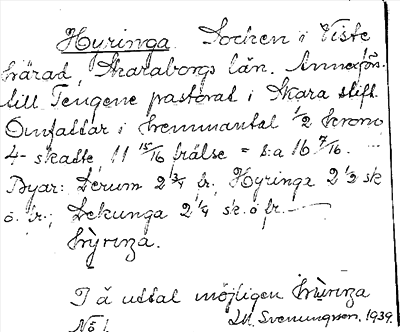 Huringa Socken i Viste
härad, Skaraborgs län. Annexförs.
till Tengene pastorat i Skara stift.
Omfattar i hemmantal 1/2 krono
4- skatte, 11 15/16 frälse = s:a 16 7/16.
Byar: Derum 2 3/4 fr., Hyringa 2 1/2 sk
o. fr.; Lekunga 2 1/4 sk. o fr. —
I ä uttal möjligen
No 1. M. Svenungsson. 1939.